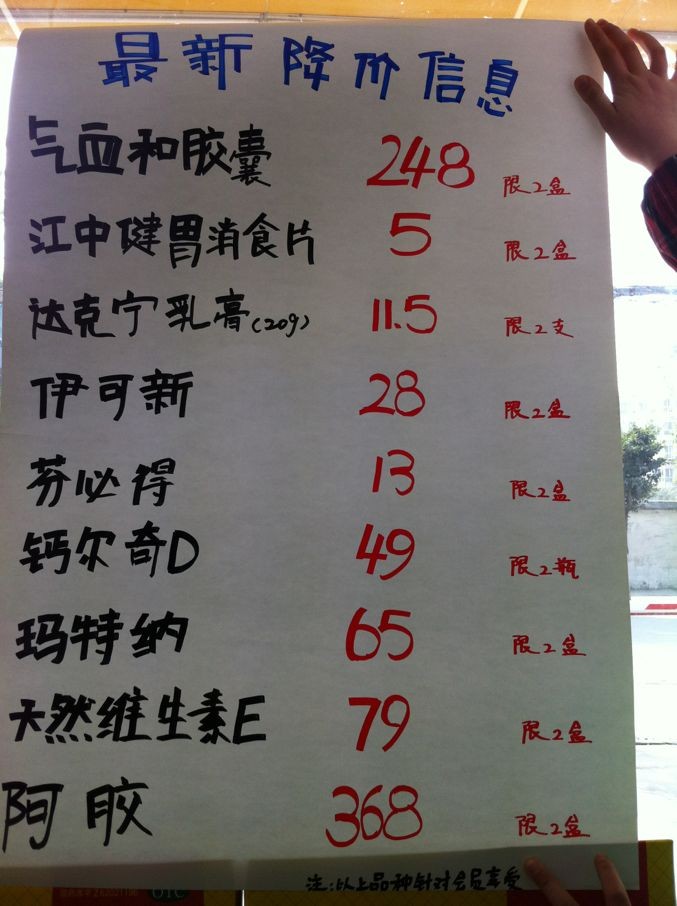 最新降价信息
气血和胶囊 248 限2盒
江中健胃消食片 5 限2盒
达克宁乳膏(20g) 11.5 限2支
伊可新 28 限2盒
芬必得 13 限2盒
钙尔奇D 49 限2瓶
玛特纳 65 限2盒
天然维生素E 79 限2盒
阿胶 368 限2盒
注:以上品种针对会员享受
OTC